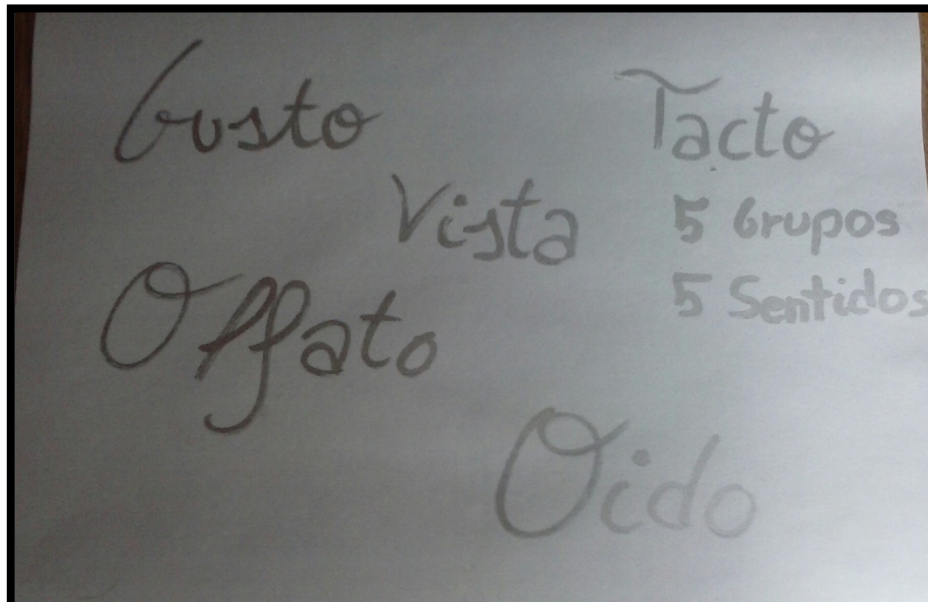 Gusto
Tacto
Vista
5 Grupos
5 Sentidos
Olffato
Oido